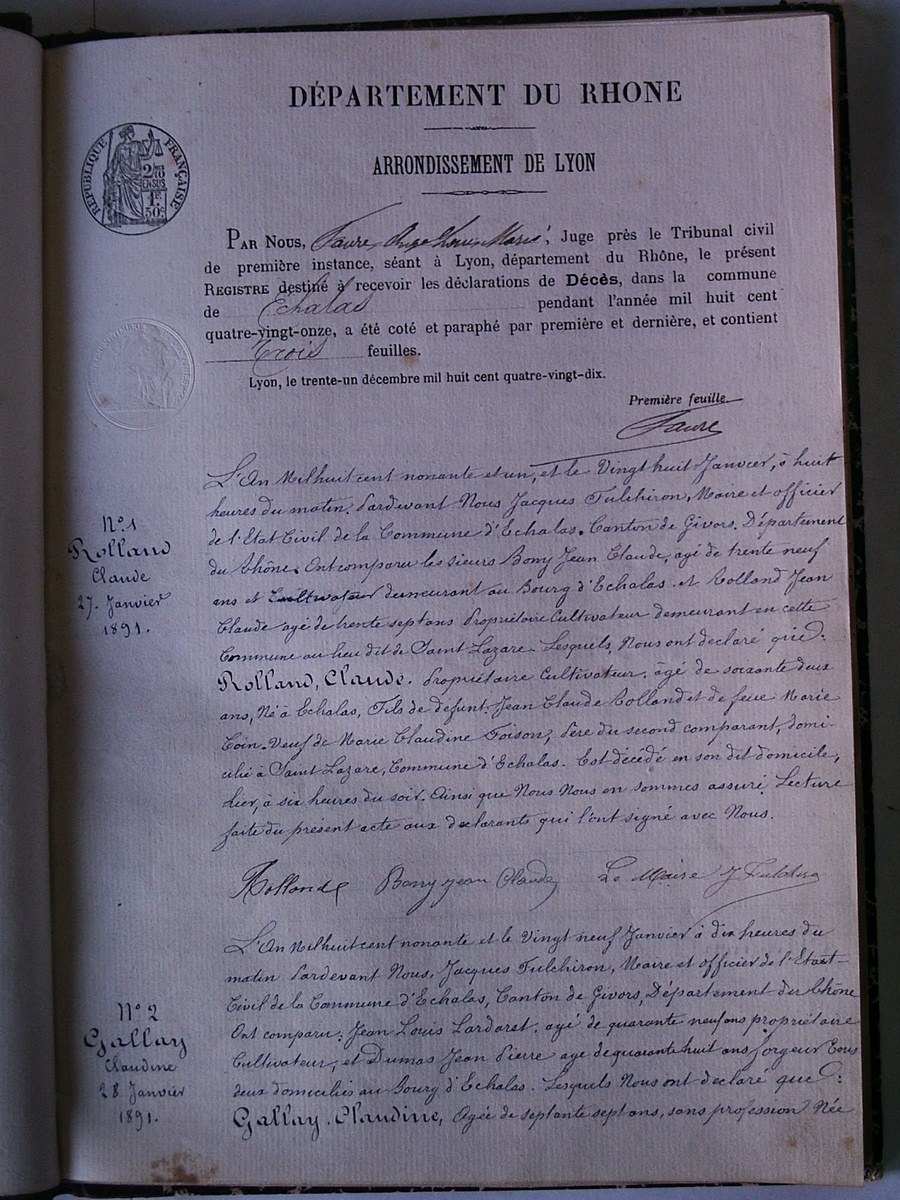 DÉPARTEMENT DU RHONE
ARRONDISSEMENT DE LYON
RÉPUBLIQUE FRANÇAISE
2/10
EN SUS
1F
50C
PAR NOUS, Faure Marie, Juge près le Tribunal civil
de première instance, séant à Lyon, département du Rhône, le présent
REGISTRE destiné à recevoir les déclarations de Décès, dans la commune
de Echalas pendant l'année mil huit cent
quatre-vingt-onze, a été coté et paraphé par première et dernière, et contient
Trois feuilles.
Lyon, le trente-un décembre mil huit cent quatre-vingt-dix.
Première feuille
Faure
N° 1
Rolland
Claude
27. Janvier
1891.
L'An Milhuit cent nonante et un, et le Vingt huit Janvier, à huit
heures du matin. Pardevant Nous Jacques Fulchiron, Maire et officier
de l'Etat Civil de la Commune d'Echalas. Canton de Givors. Département
du Rhône. Ont comparu les sieurs Bony Jean Claude, agé de trente neuf
ans et cultivateur demeurant au Bourg d'Echalas. et Rolland Jean
Claude agé de trente sept ans Propriétaire Cultivateur demeurant en cette
Commune au lieu dit de Saint Lazare. Lesquels, Nous ont déclaré que:
Rolland, Claude. Propriétaire Cultivateur. âgé de soixante deux
ans, Né à Echalas, Fils de défunt. Jean Claude Rolland et de feue Marie
Coin. Veuf de Marie Claudine Poison, Père du second comparant, domi-
cilié à Saint Lazare, Commune d'Echalas. Est décédé en son dit domicile,
hier, à six heures du soir. Ainsi que Nous Nous en sommes assuré. Lecture
faite du présent acte aux declarants qui l'ont signé avec Nous.
Rolland Bony jean Claude Le Maire J Fulchiron
N° 2
Gallay
Claudine
28 Janvier
1891.
L'An Milhuit cent nonante et le Vingt neuf Janvier à dix heures du
matin Pardevant Nous, Jacques Fulchiron, Maire et officier de l'Etat-
Civil de la Commune d'Echalas, Canton de Givors, Département du Rhône
Ont comparu. Jean Louis Lardaret. agé de quarante neuf ans propriétaire
Cultivateur, et Dumas Jean Pierre age de quarante huit ans forgeur Tous
deux domiciliés au Bourg d'Echalas. Lesquels Nous ont déclaré que:
Gallay. Claudine, Agée de septante sept ans, sans profession Née